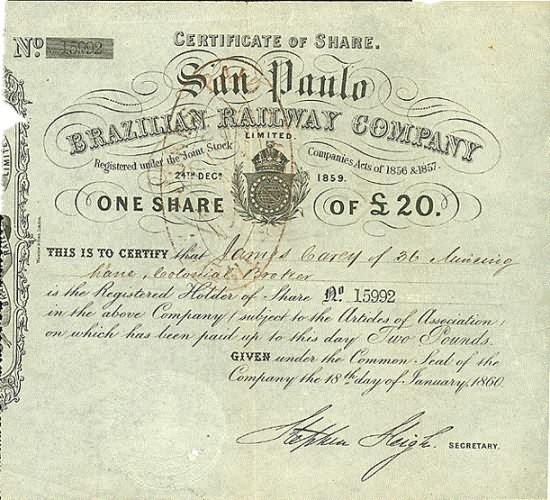 CERTIFICATE OF SHARE.
No 15992
San Paulo
BRAZILIAN RAILWAY COMPANY
LIMITED.
Registered under the Joint Stock Companies Acts of 1856 & 1857.
24TH DECR 1859.
ONE SHARE OF £20.
THIS IS TO CERTIFY that James Carey of 36 Mincing
Lane, Colonial Broker
is the Registered Holder of Share No 15992
in the above Company, subject to the Articles of Association,
on which has been paid up to this day Two Pounds.
GIVEN under the Common Seal of the
Company the 18th day of January, 1860.
Stephen Sleigh. SECRETARY.